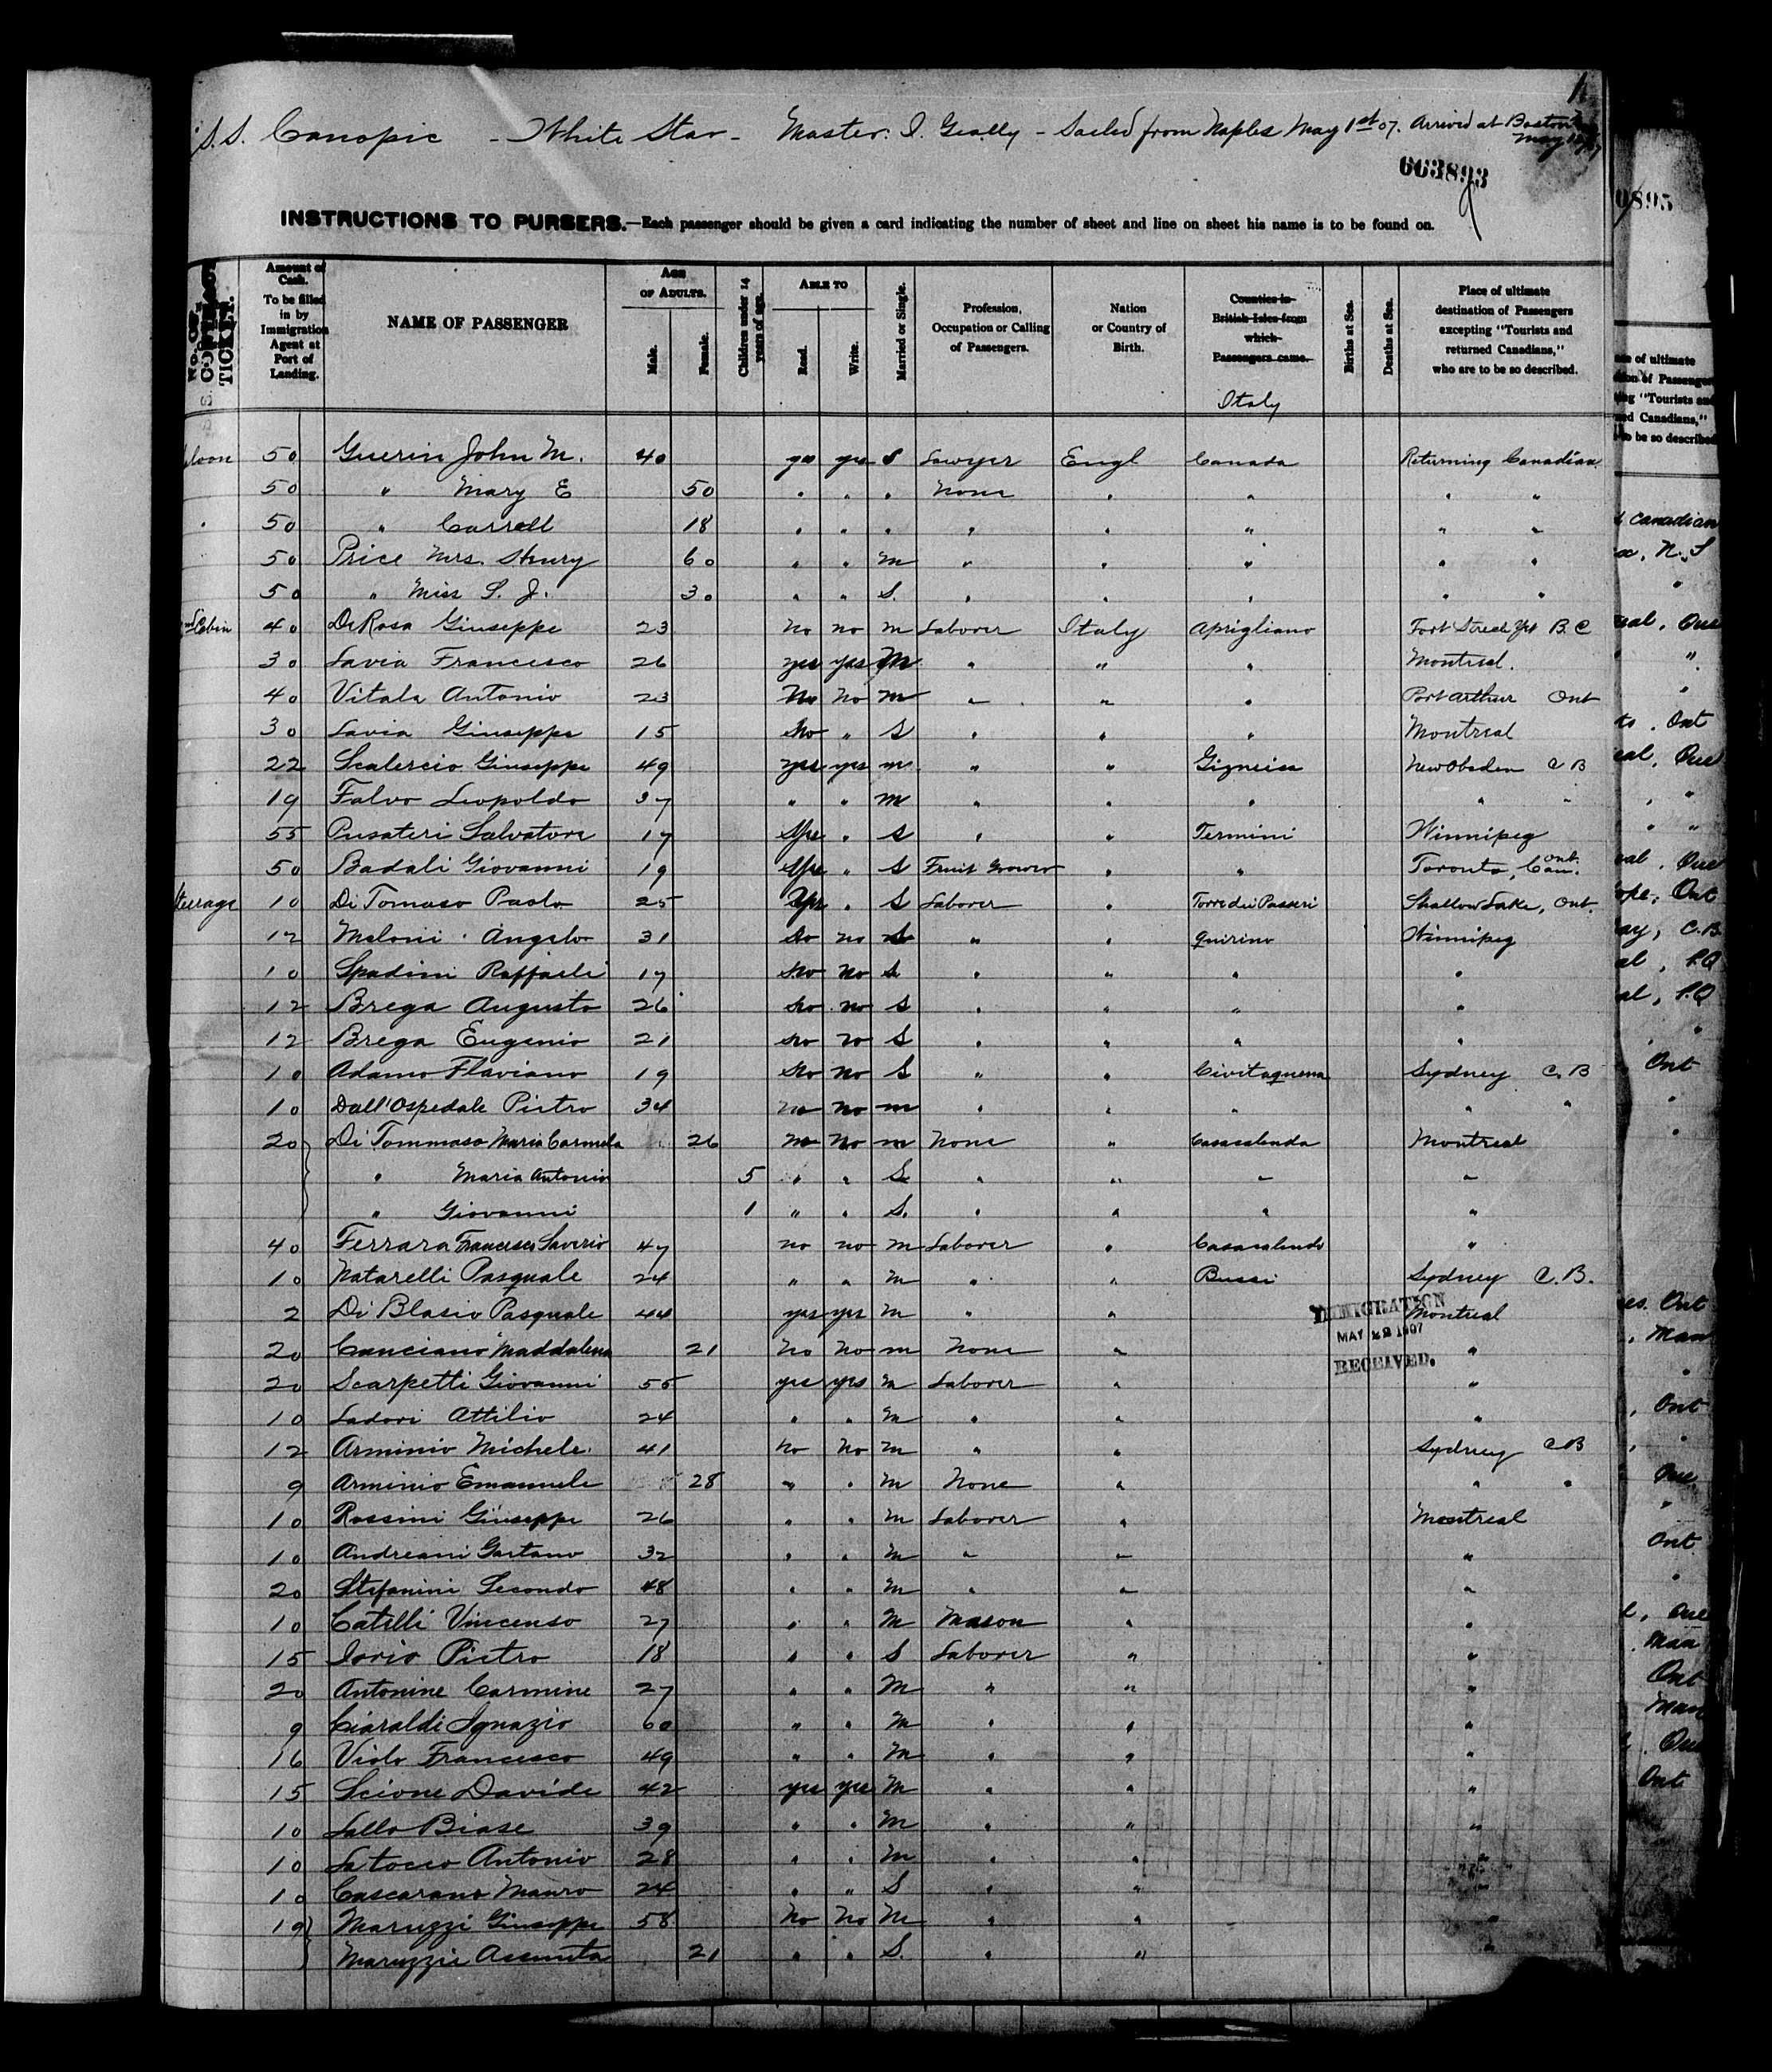 S.S. Canopic - White Star - Master: I. Geally - Sailed from Naples May 1st 07. Arrived at Boston
May
663893
INSTRUCTIONS TO PURSERS.—Each passenger should be given a card indicating the number of sheet and line on sheet his name is to be found on.
TICKET. Amount of Cash. To be filled in by Immigration Agent at Port of Landing. NAME OF PASSENGER AGE OF ADULTS. Male. Female. Children under 14 years of age. ABLE TO Read. Write. Married or Single. Profession, Occupation or Calling of Passengers. Nation or Country of Birth. Counties in British Isles from which Passengers came. Italy Births at Sea. Deaths at Sea. Place of ultimate destination of Passengers excepting "Tourists and returned Canadians," who are to be so described.
50 Guerin John M. 40 yes yes S Lawyer Engl Canada Returning Canadian
50 " Mary E 50 " " " None " " " "
50 " Carroll 18 " " " " " " " "
50 Price Mrs. Henry 60 " " M " " " " "
50 " Miss S. J. 30 " " S. " " " " "
Cabin 40 De Rosa Giuseppe 23 no no m Laborer Italy Aprigliano Fort Street B.C
30 Lavia Francesco 26 yes yes M " " " Montreal.
40 Vitala Antonio 23 No No m " " " Port Arthur Ont
30 Lavia Giuseppe 15 No " S " " " Montreal
22 Scalercio Giuseppe 49 yes yes m " " C B
19 Falvo Leopoldo 37 " " M " " " " "
55 Pusateri Salvatore 17 Yes " S " " Termini Winnipeg
50 Badali Giovanni 19 Yes " S Fruit Grower " " Toronto, Ont. Can.
Steerage 10 Di Tomaso Paolo 25 Yes " S Laborer " Torre dei Passeri Shallow Lake, Ont.
12 Meloni Angelo 31 No no S " " Quirino Winnipeg
10 Spadini Raffaele 17 No No S " " " "
12 Brega Augusto 26 No no S " " " "
12 Brega Eugenio 21 No no S " " " "
10 Adamo Flaviano 19 No No S " " Civitaquena Sydney C.B
10 Dall'Ospedale Pietro 34 No No m " " " " "
20 Di Tommaso Maria Carmela 26 No No m None " Casacalenda Montreal
" Maria Antonio 5 " " S " " " "
" Giovanni 1 " " S. " " " "
40 Ferrara Francesco Saverio 47 no no m Laborer " Casacalenda "
10 Natarelli Pasquale 24 " " M " " Bussi Sydney C.B.
2 Di Blasio Pasquale 44 yes yes M " " Montreal
IMMIGRATION MAY 22 1907 RECEIVED.
20 Canciano Maddalena 21 No No m None " "
20 Scarpetti Giovanni 55 yes yes M Laborer " "
10 Ladori Attilio 24 " " M " " "
12 Arminio Michele 41 No No m " " Sydney C B
9 Arminio Emanuele 28 " " M None " " "
10 Rossini Giuseppe 26 " " M Laborer " Montreal
10 Andreani Gaetano 32 " " M " " "
20 Stefanini Secondo 48 " " M " " "
10 Catelli Vincenso 27 " " M Mason " "
15 Iorio Pietro 18 " " S Laborer " "
20 Antonine Carmine 27 " " M " " "
9 Ciaraldi Ignazio 60 " " M " " "
16 Violo Francesco 49 " " M " " "
15 Scione Davide 42 yes yes M " " "
10 Lallo Biase 39 " " M " " "
10 La tocco Antonio 28 " " M " " "
10 Cascarano Mauro 24 " " S " " "
19 Maruzzi Giuseppe 58 No No M " " "
Maruzzi Assunta 21 " " S. " " "